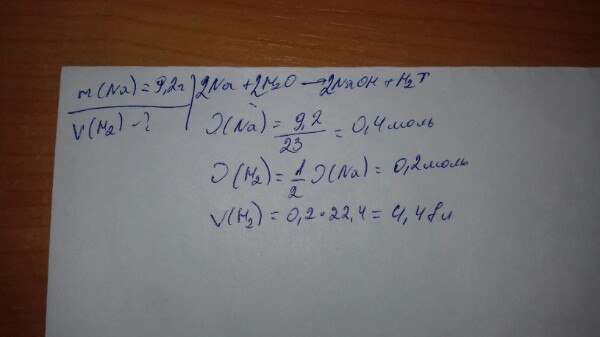 m(Na)=9,2г | 2Na + 2H₂O → 2NaOH + H₂↑
V(H₂) - ?
ν(Na) = 9,2/23 = 0,4 моль
ν(H₂) = 1/2 ν(Na) = 0,2 моль
V(H₂) = 0,2 · 22,4 = 4,48 л